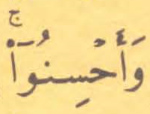 وَأَحْسِنُوٓا۟ۚ